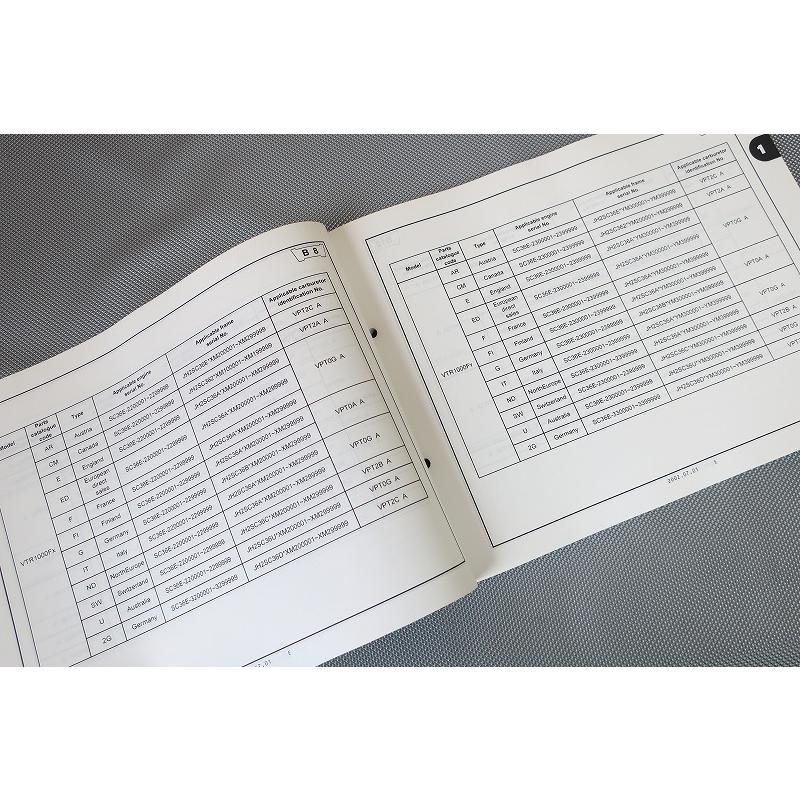 B 8
Model
Parts catalogue code
Type
Applicable engine serial No.
Applicable frame serial No.
Applicable carburetor identification No.
VTR1000Fx
AR Austria SC36E-2200001~2299999 JH2SC36E*XM200001~XM299999 VPT2C A
CM Canada SC36E-2200001~2299999 VPT2A A
E England SC36E-2200001~2299999 JH2SC36A*XM200001~XM299999 VPT0G A
ED European direct sales SC36E-2200001~2299999 JH2SC36A*XM200001~XM299999
F France SC36E-2200001~2299999 JH2SC36A*XM200001~XM299999
FI Finland SC36E-2200001~2299999 JH2SC36A*XM200001~XM299999 VPT0A A
G Germany SC36E-2200001~2299999
IT Italy SC36E-2200001~2299999 VPT0G A
ND NorthEurope SC36E-2200001~2299999 JH2SC36A*XM200001~XM299999
SW Switzerland SC36E-2200001~2299999 JH2SC36C*XM200001~XM299999 VPT2B A
U Australia SC36E-2200001~2299999 JH2SC36U*XM200001~XM299999 VPT0G A
2G Germany SC36E-3200001~3299999 JH2SC36D*XM200001~XM299999 VPT2C A
07.01 E
1
Model
Parts catalogue code
Type
Applicable engine serial No.
Applicable frame serial No.
Applicable carburetor identification No.
VTR1000FY
AR Austria SC36E-2300001~2399999 JH2SC36E*YM300001~YM399999 VPT2C A
CM Canada SC36E-2300001~2399999 VPT2A A
E England SC36E-2300001~2399999 JH2SC36A*YM300001~YM399999 VPT0G A
ED European direct sales SC36E-2300001~2399999 JH2SC36A*YM300001~YM399999
F France SC36E-2300001~2399999 JH2SC36A*YM300001~YM399999
FI Finland SC36E-2300001~2399999 JH2SC36A*YM300001~YM399999 VPT0A A
G Germany SC36E-2300001~2399999 JH2SC36B*YM300001~YM399999
IT Italy SC36E-2300001~2399999 JH2SC36A*YM300001~YM399999 VPT0G A
ND NorthEurope SC36E-2300001~2399999 JH2SC36A*YM300001~YM399999
SW Switzerland SC36E-2300001~2399999 JH2SC36C*YM300001~YM399999 VPT2B A
U Australia SC36E-2300001~2399999 JH2SC36U*YM300001~YM399999 VPT0G
2G Germany SC36E-3300001~3399999 JH2SC36D*YM300001~YM399999
2002.07.01 E